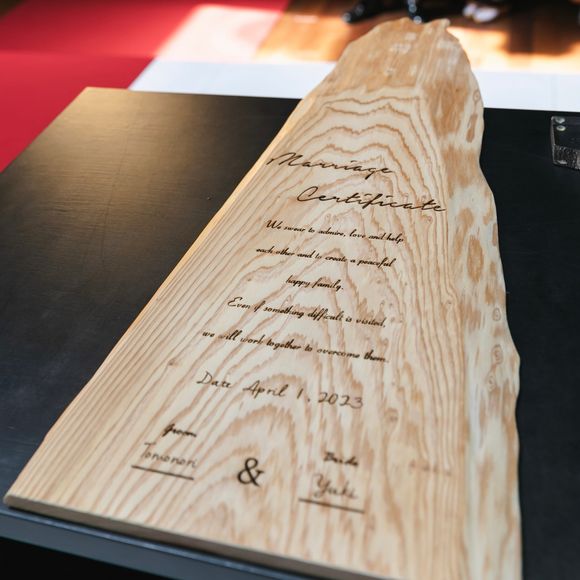 Marriage
Certificate
We swear to admire, love and help
each other and to create a peaceful
happy family.
Even if something difficult is visited,
we will work together to overcome them.
Date April 1, 2023
Groom
Tomonori
&
Bride
Yuki